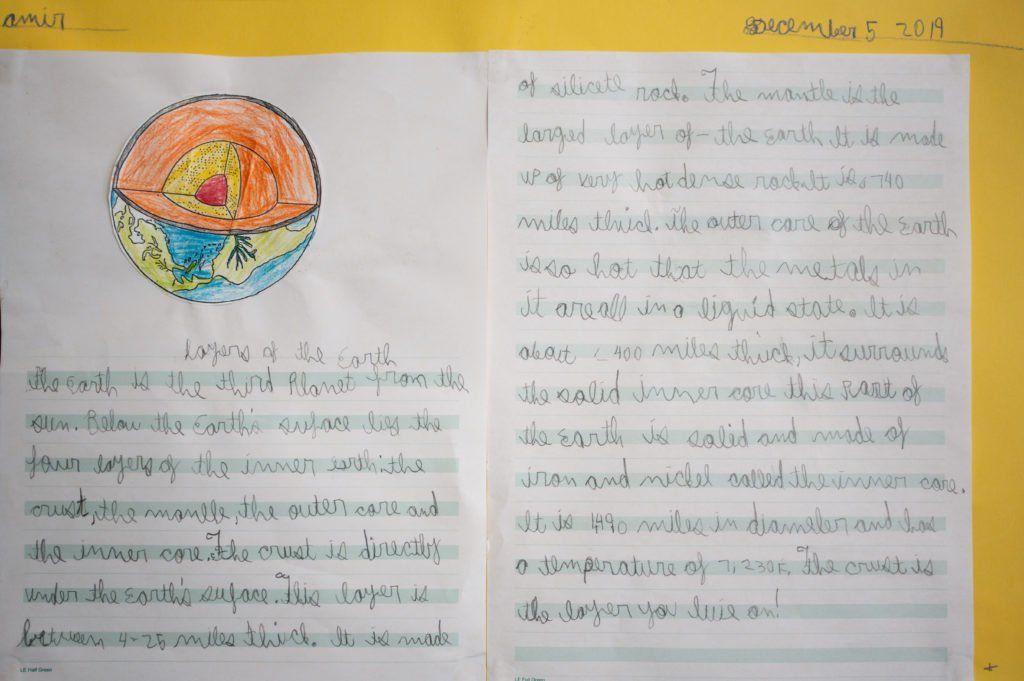 amir
December 5 2019
Layers of the Earth
the Earth is the third Planet from the
sun. Below the Earth's suface lies the
four layers of the inner earth: the
crust, the mantle, the outer core and
the inner core. The crust is directly
under the Earth's suface. This layer is
between 4-25 miles thick. It is made
LE Half Green
of silicete rock. The mantle is the
larged layer of the Earth It is made
up of very hot dense rock It is 740
miles thick. The outer core of the Earth
is so hot that the metals in
it are all in a liquid state. It is
about 400 miles thick, it surrounds
the solid inner core this part of
the Earth is solid and made of
iron and nickel called the inner core.
It is 1490 miles in diameter and has
a temperature of 7,230F. The crust is
the layer you live on!
LE Full Green